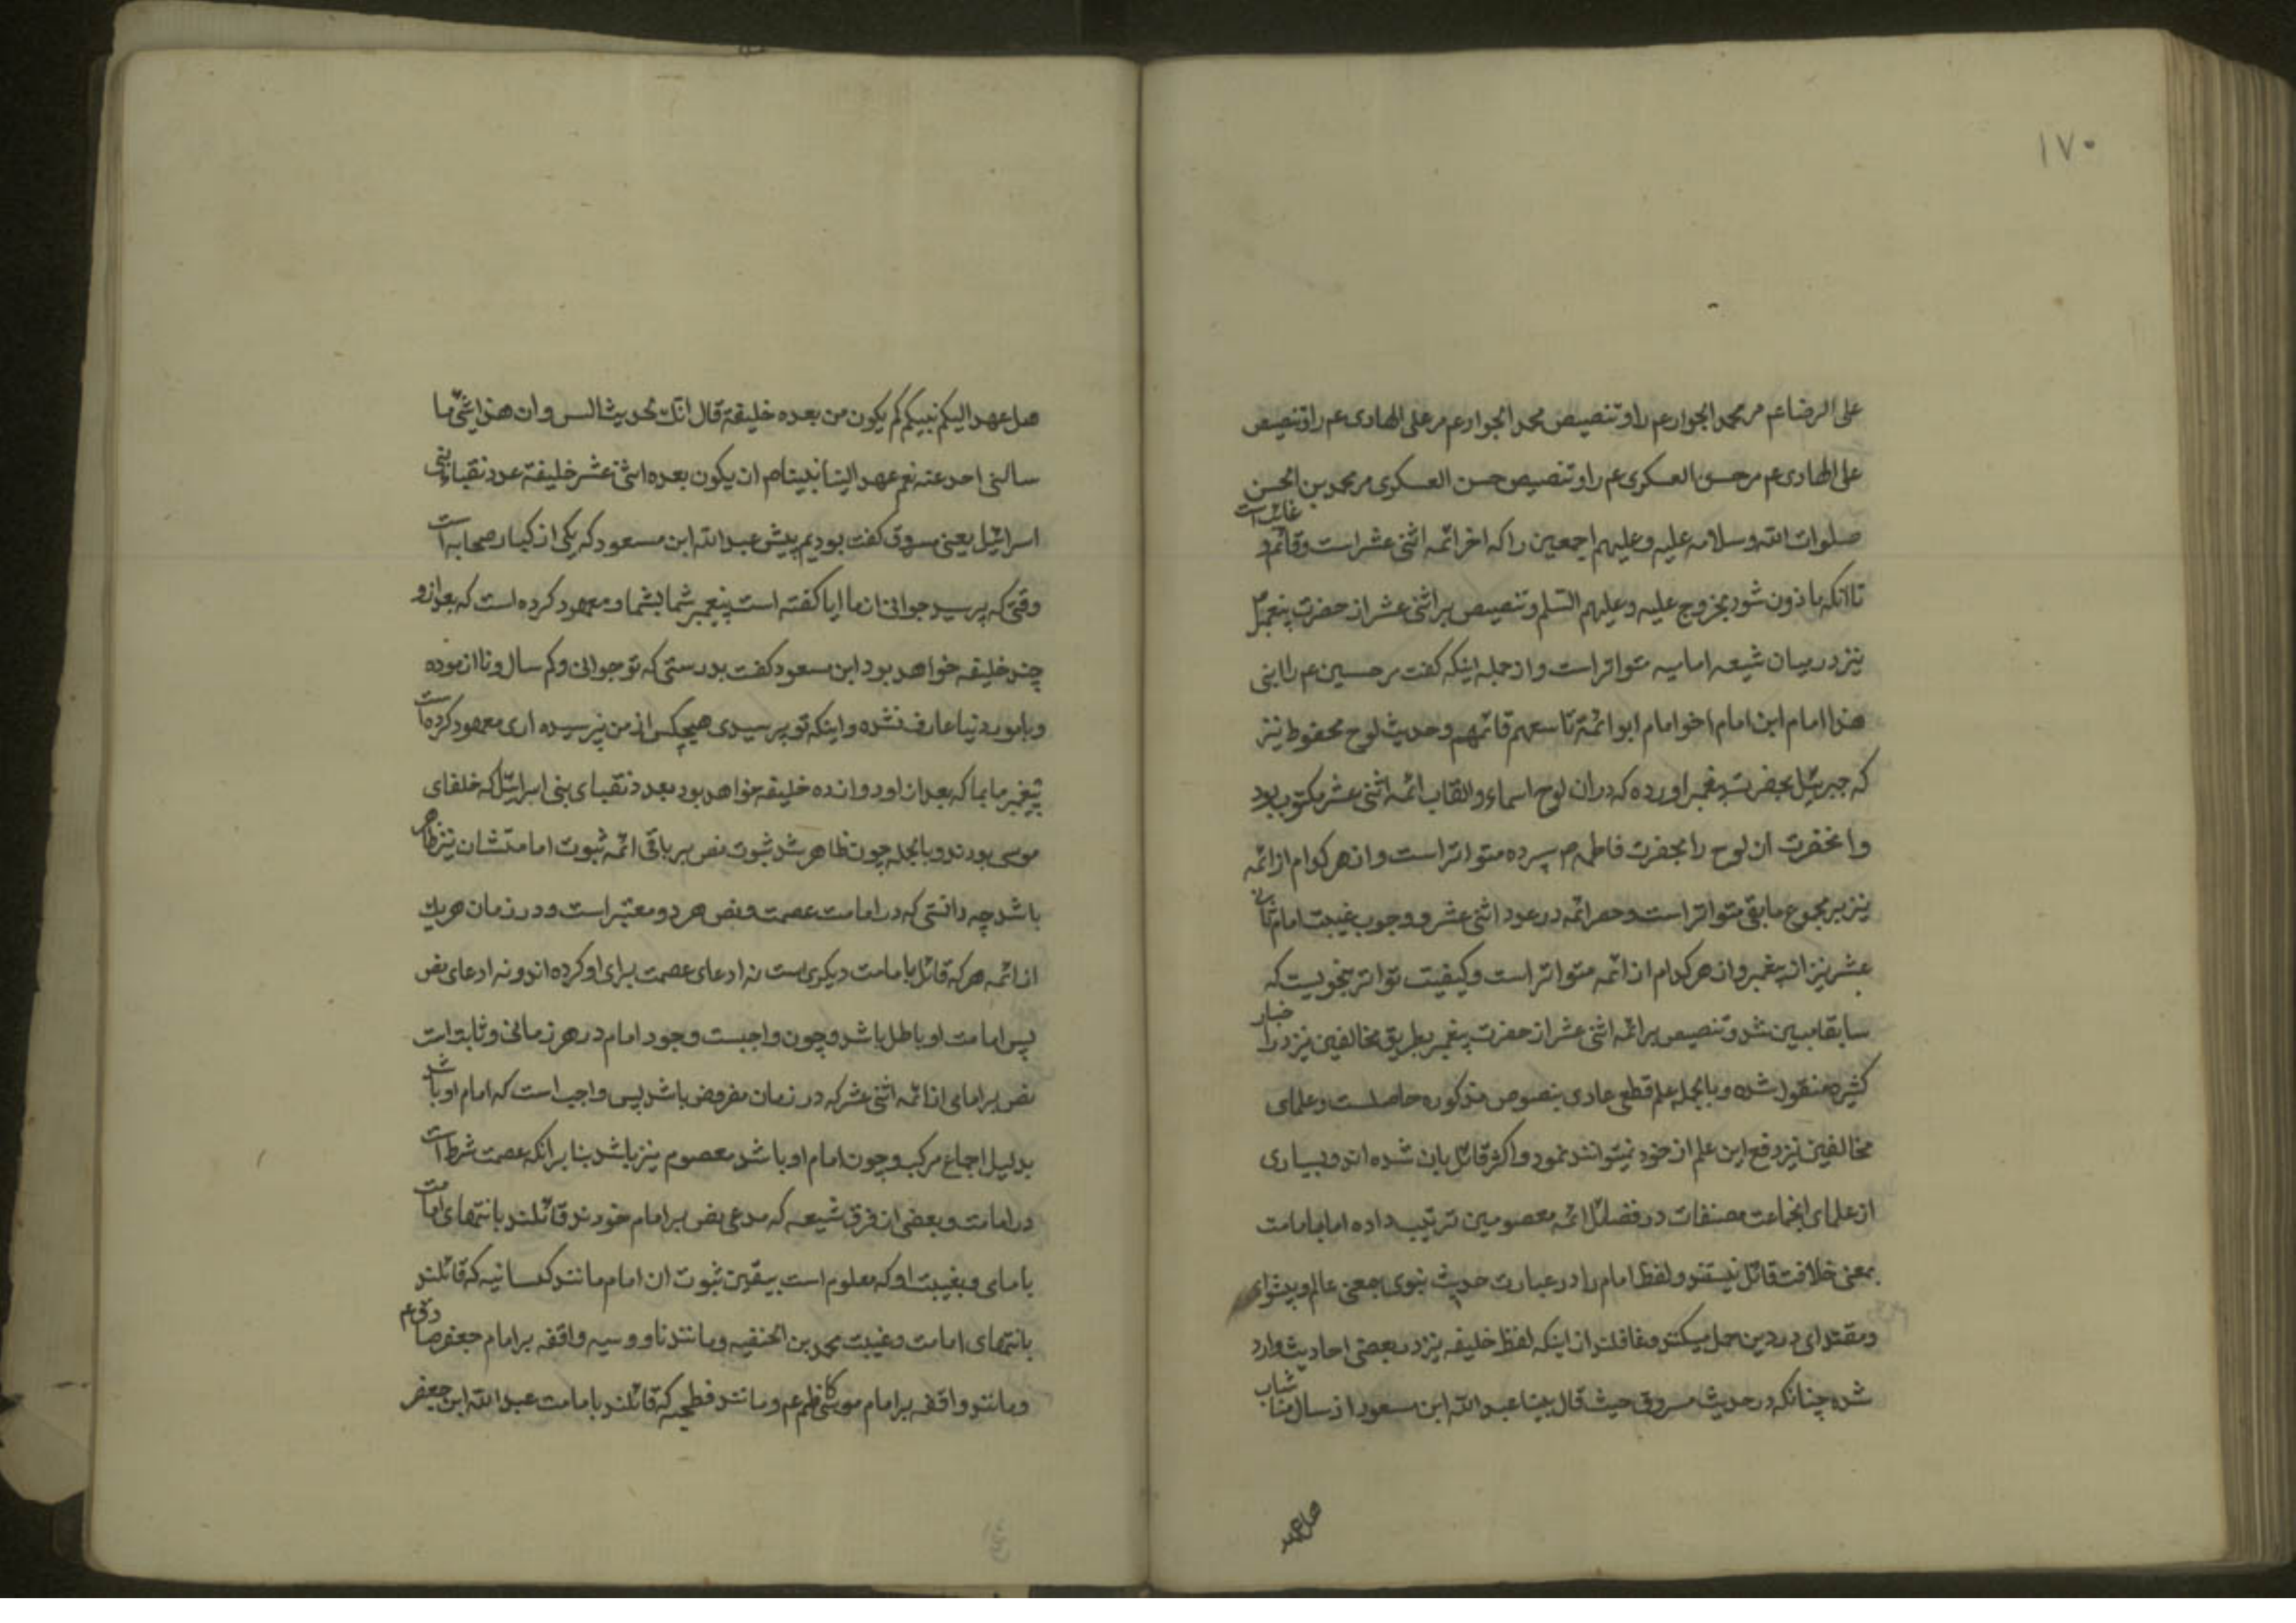 ١٧٠
علی الرضا عم مر محمد الجواد عم را و تنصیص محمد الجواد عم مر علی الهادی عم را و تنصیص
علی الهادی عم مر حسن العسکری عم را و تنصیص حسن العسکری مر محمد بن الحسن
صلوات الله و سلامه علیه و علیهم اجمعین را که اخر ائمه اثنی عشر است و قائم و غائب است
تا انکه ماذون شود بخروج علیه و علیهم السلم و تنصیص بر اثنی عشر از حضرت پیغمبر
نیز در میان شیعه امامیه متواتر است و از جمله اینکه گفت مر حسین عم را ابنی
هذا امام ابن امام اخو امام ابو ائمة تاسعهم قائمهم و حدیث لوح محفوظ نیز
که جبرئیل بحضرت پیغمبر اورده که در ان لوح اسماء و القاب ائمه اثنی عشر مکتوب بود
و انحضرت ان لوح را بحضرت فاطمه سپرده متواتر است و از هر کدام از ائمه
نیز بر مجموع مابقی متواتر است و حصر ائمه در عدد اثنی عشر و وجوب غیبت امام ثانی
عشر نیز از پیغمبر و از هر کدام از ائمه متواتر است و کیفیت تواتر بنحویست که
سابقا مبین شد و تنصیص بر ائمه اثنی عشر از حضرت پیغمبر بطریق مخالفین نیز در اخبار
کثیره منقول شده و بالجمله علم قطعی عادی بنصوص مذکوره حاصلست و علمای
مخالفین نیز دفع این علم از خود نمیتوانند نمود و اکثر قائل بان شده اند و بسیاری
از علمای انجماعت مصنفات در فضائل ائمه معصومین ترتیب داده اما بامامت
بمعنی خلافت قائل نیستند و لفظ امام را در عبارت حدیث نبوی بمعنی عالم و پیشوای
و مقتدای در دین حمل میکنند و غافلند از اینکه لفظ خلیفه نیز در بعضی احادیث وارد
شده چنانکه در حدیث مسروق حیث قال بینا عبد الله ابن مسعود اذ سال منا شاب
هل عهد
هل عهد الیکم نبیکم کم یکون من بعده خلیفة قال انک لحدیث السن و ان هذا شئ ما
سالنی احد عنه نعم عهد الینا نبینا ان یکون بعده اثنی عشر خلیفة عدد نقباء بنی
اسرائیل یعنی مسروق گفت بودیم پیش عبد الله ابن مسعود که یکی از کبار صحابه است
وقتی که پرسید جوانی از ما ایا گفته است پیغمبر شما بشما و معهود کرده است که بعد از و
چند خلیفه خواهد بود ابن مسعود گفت بدرستی که تو جوانی و کم سال و نا ازموده
و بامور دنیا عارف نشده و اینکه تو پرسیدی هیچکس از من نپرسیده اری معهود کرده است
پیغمبر ما بما که بعد از او دوازده خلیفه خواهد بود بعدد نقبای بنی اسرائیل که خلفای
موسی بودند و بالجمله چون ظاهر شد ثبوت نص بر باقی ائمه ثبوت امامتشان نیز ظاهر
باشد چه دانستی که در امامت عصمت و نص هر دو معتبر است و در زمان هریک
از ائمه هر که قائل بامامت دیگری است نه ادعای عصمت برای او کرده اند و نه ادعای نص
پس امامت او باطل باشد و چون واجبست وجود امام در هر زمانی و ثابت است
نص بر امامی از ائمه اثنی عشر که در زمان مفروض باشد پس واجب است که امام او باشد
بدلیل اجماع مرکب و چون امام او باشد معصوم نیز باشد بنا بر انکه عصمت شرط است
در امامت و بعضی از فرق شیعه که مدعی نص بر امام خودند قائلند بانتهای امامت
بامامی و بغیبت او که معلوم است بیقین ثبوت ان امام مانند کیسانیه که قائلند
بانتهای امامت و غیبت محمد بن الحنفیه و مانند ناووسیه واقفه بر امام جعفر صادق عم
و مانند واقفه بر امام موسی کاظم عم و مانند فطحیه که قائلند بامامت عبد الله ابن جعفر